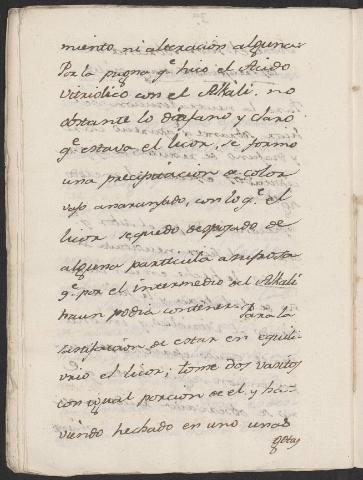 miento, ni alteración alguna
Por la pugna q.e hizo el Acido
vitriolico con el Alkali, no
obstante lo diafano y claro
q.e estava el licor, se formo
una precipitacion de color
rojo anaranjado, con lo q.e el
licor se quedo despojado de
alguna particula
q.e por el intermedio del Alkali
haun podia contener. Para la
satisfaccion de estar en equili-
vrio el licor; tome dos vasitos
con igual porcion de el, y ha-
viendo hechado en uno unas
gotas